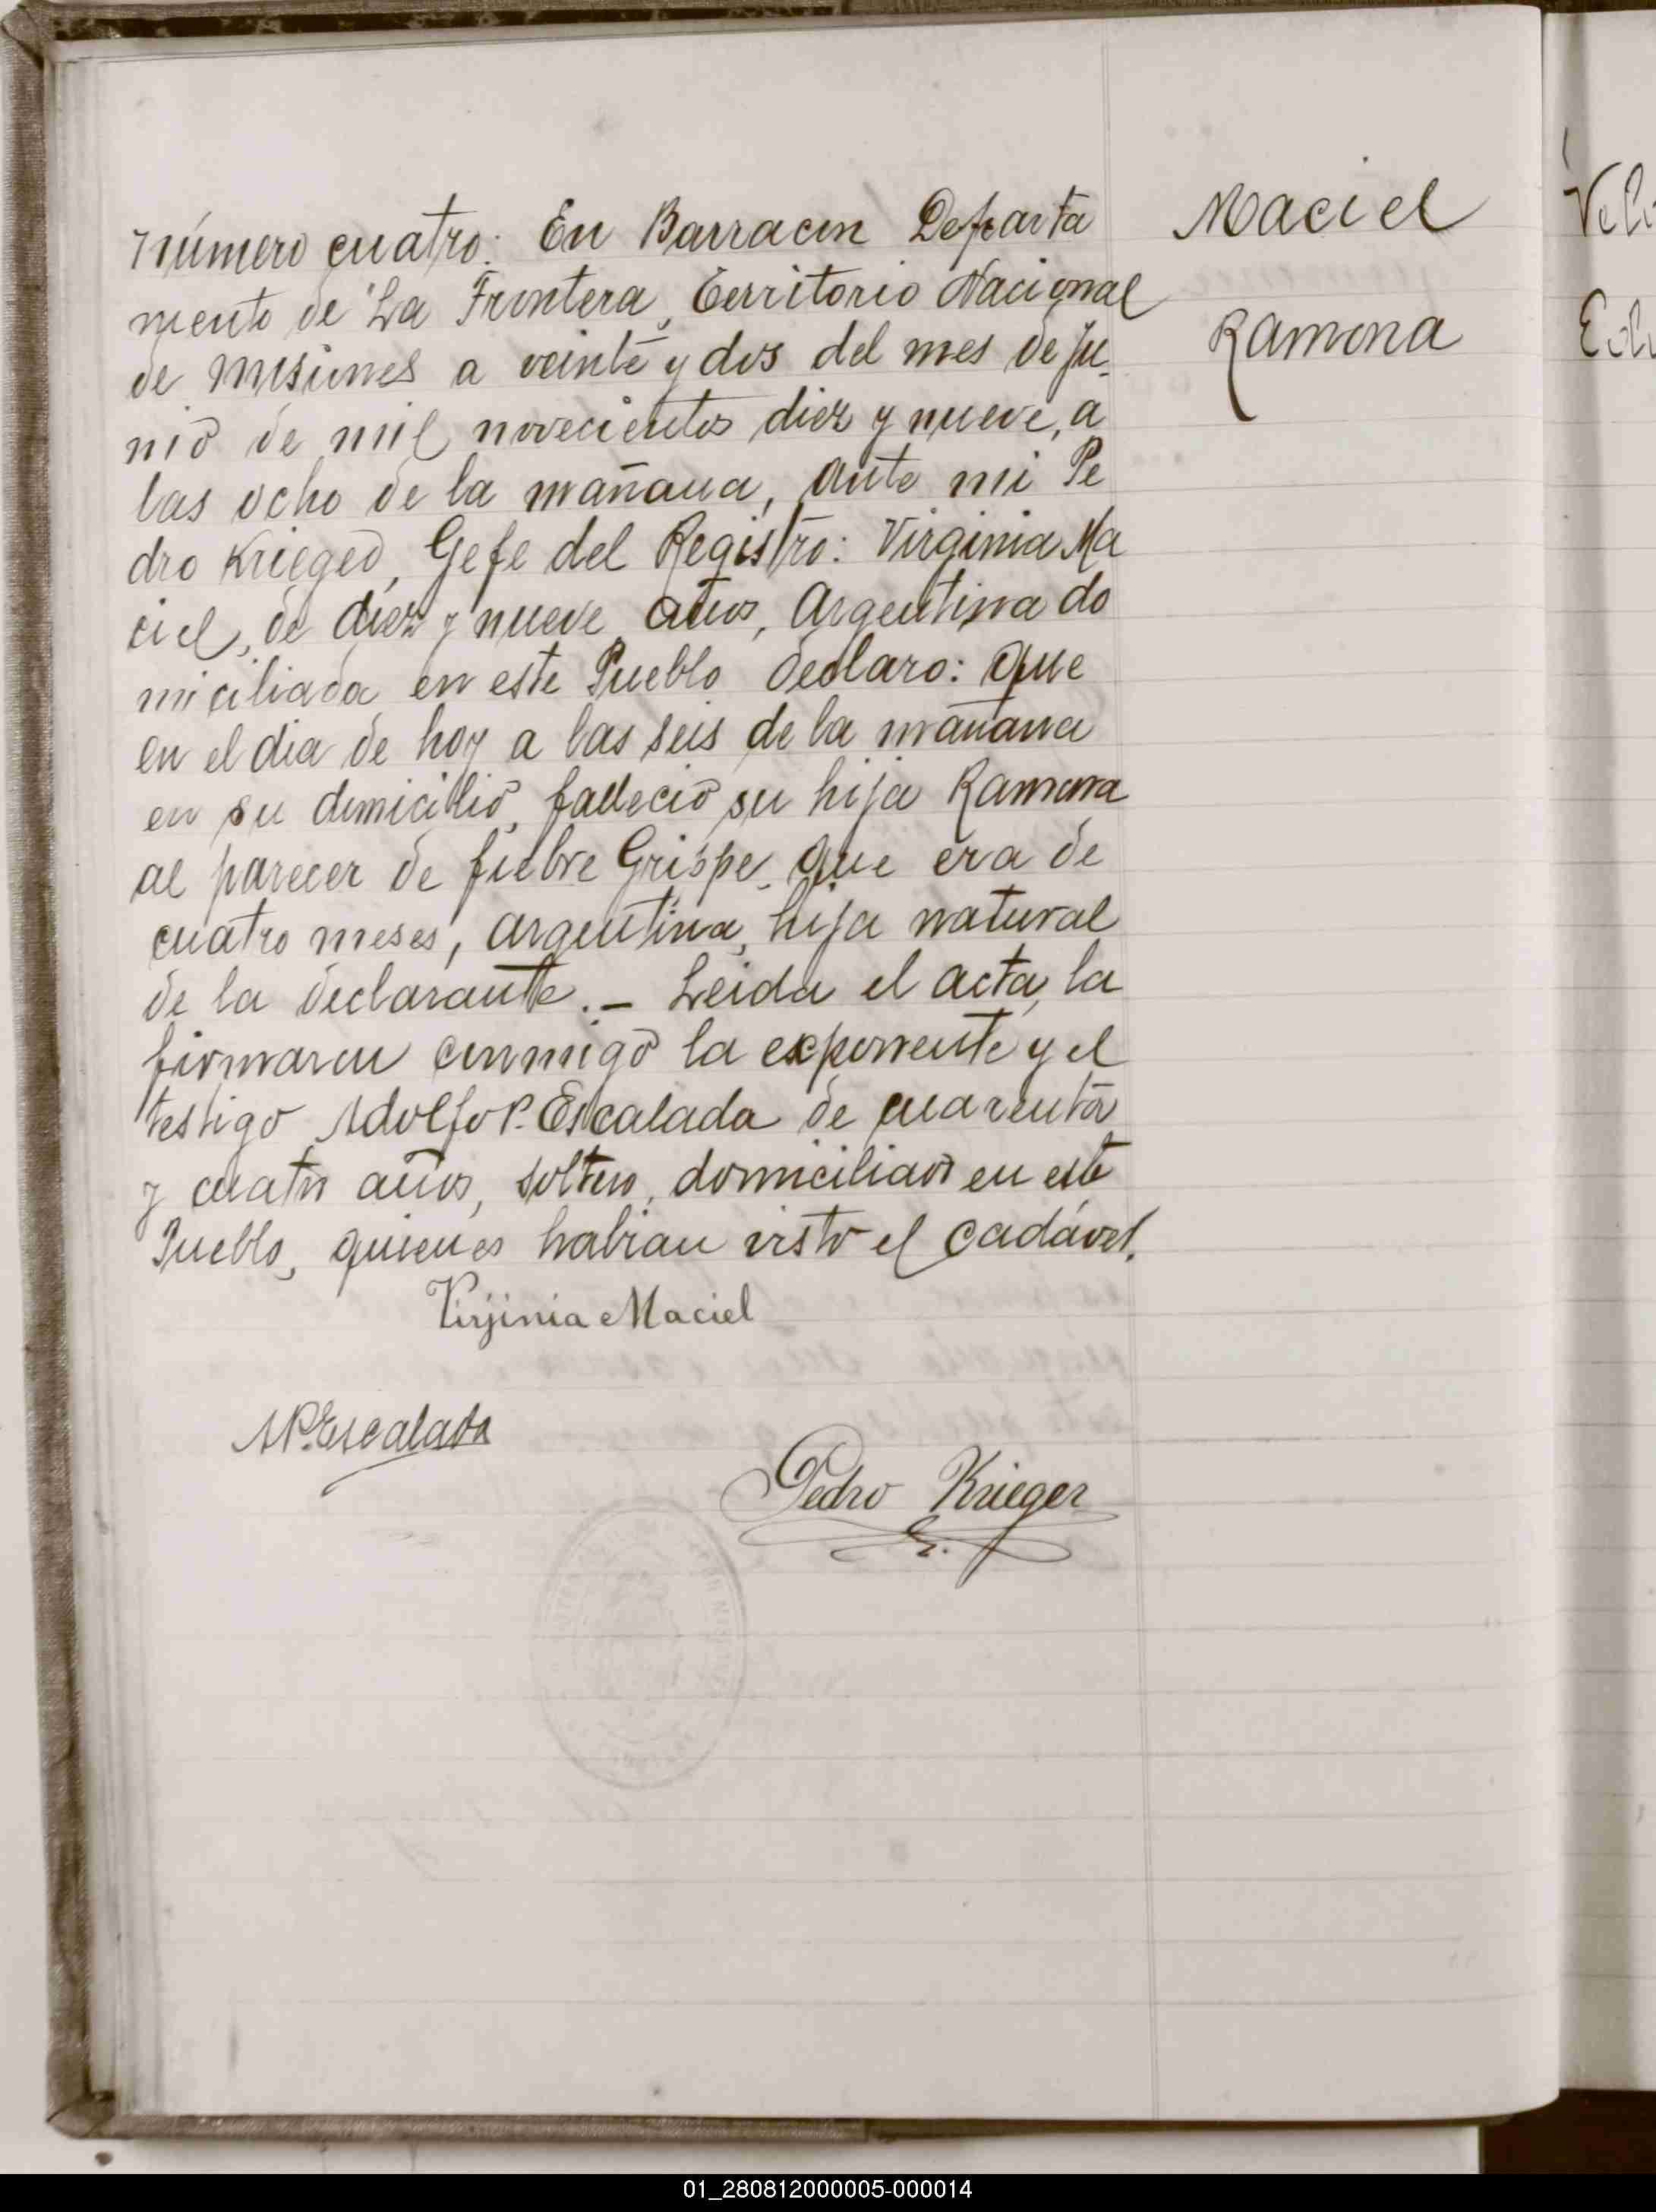 Número cuatro: En Barracon Departa
mento de La Frontera, Territorio Nacional
de Misiones a veinte y dos del mes de Ju-
nio de mil novecientos diez y nueve, a
las ocho de la mañana, ante mi Pe
dro Krieger, Gefe del Registro: Virginia Ma
ciel, de diez y nueve años, Argentina do
miciliada en este Pueblo declaro: que
en el dia de hoy a las seis de la mañana
en su domicilio, falleció su hija Ramona
al parecer de fiebre Grispe, que era de
cuatro meses, argentina, hija natural
de la declarante.- Leida el acta, la
firmaron conmigo la exponente y el
testigo Adolfo P. Escalada de cuarenta
y cuatro años, soltero, domiciliado en este
Pueblo, quienes habian visto el cadáver.
Virjinia Maciel
A P. Escalada
Pedro Krieger
Maciel
Ramona
01_280812000005-000014